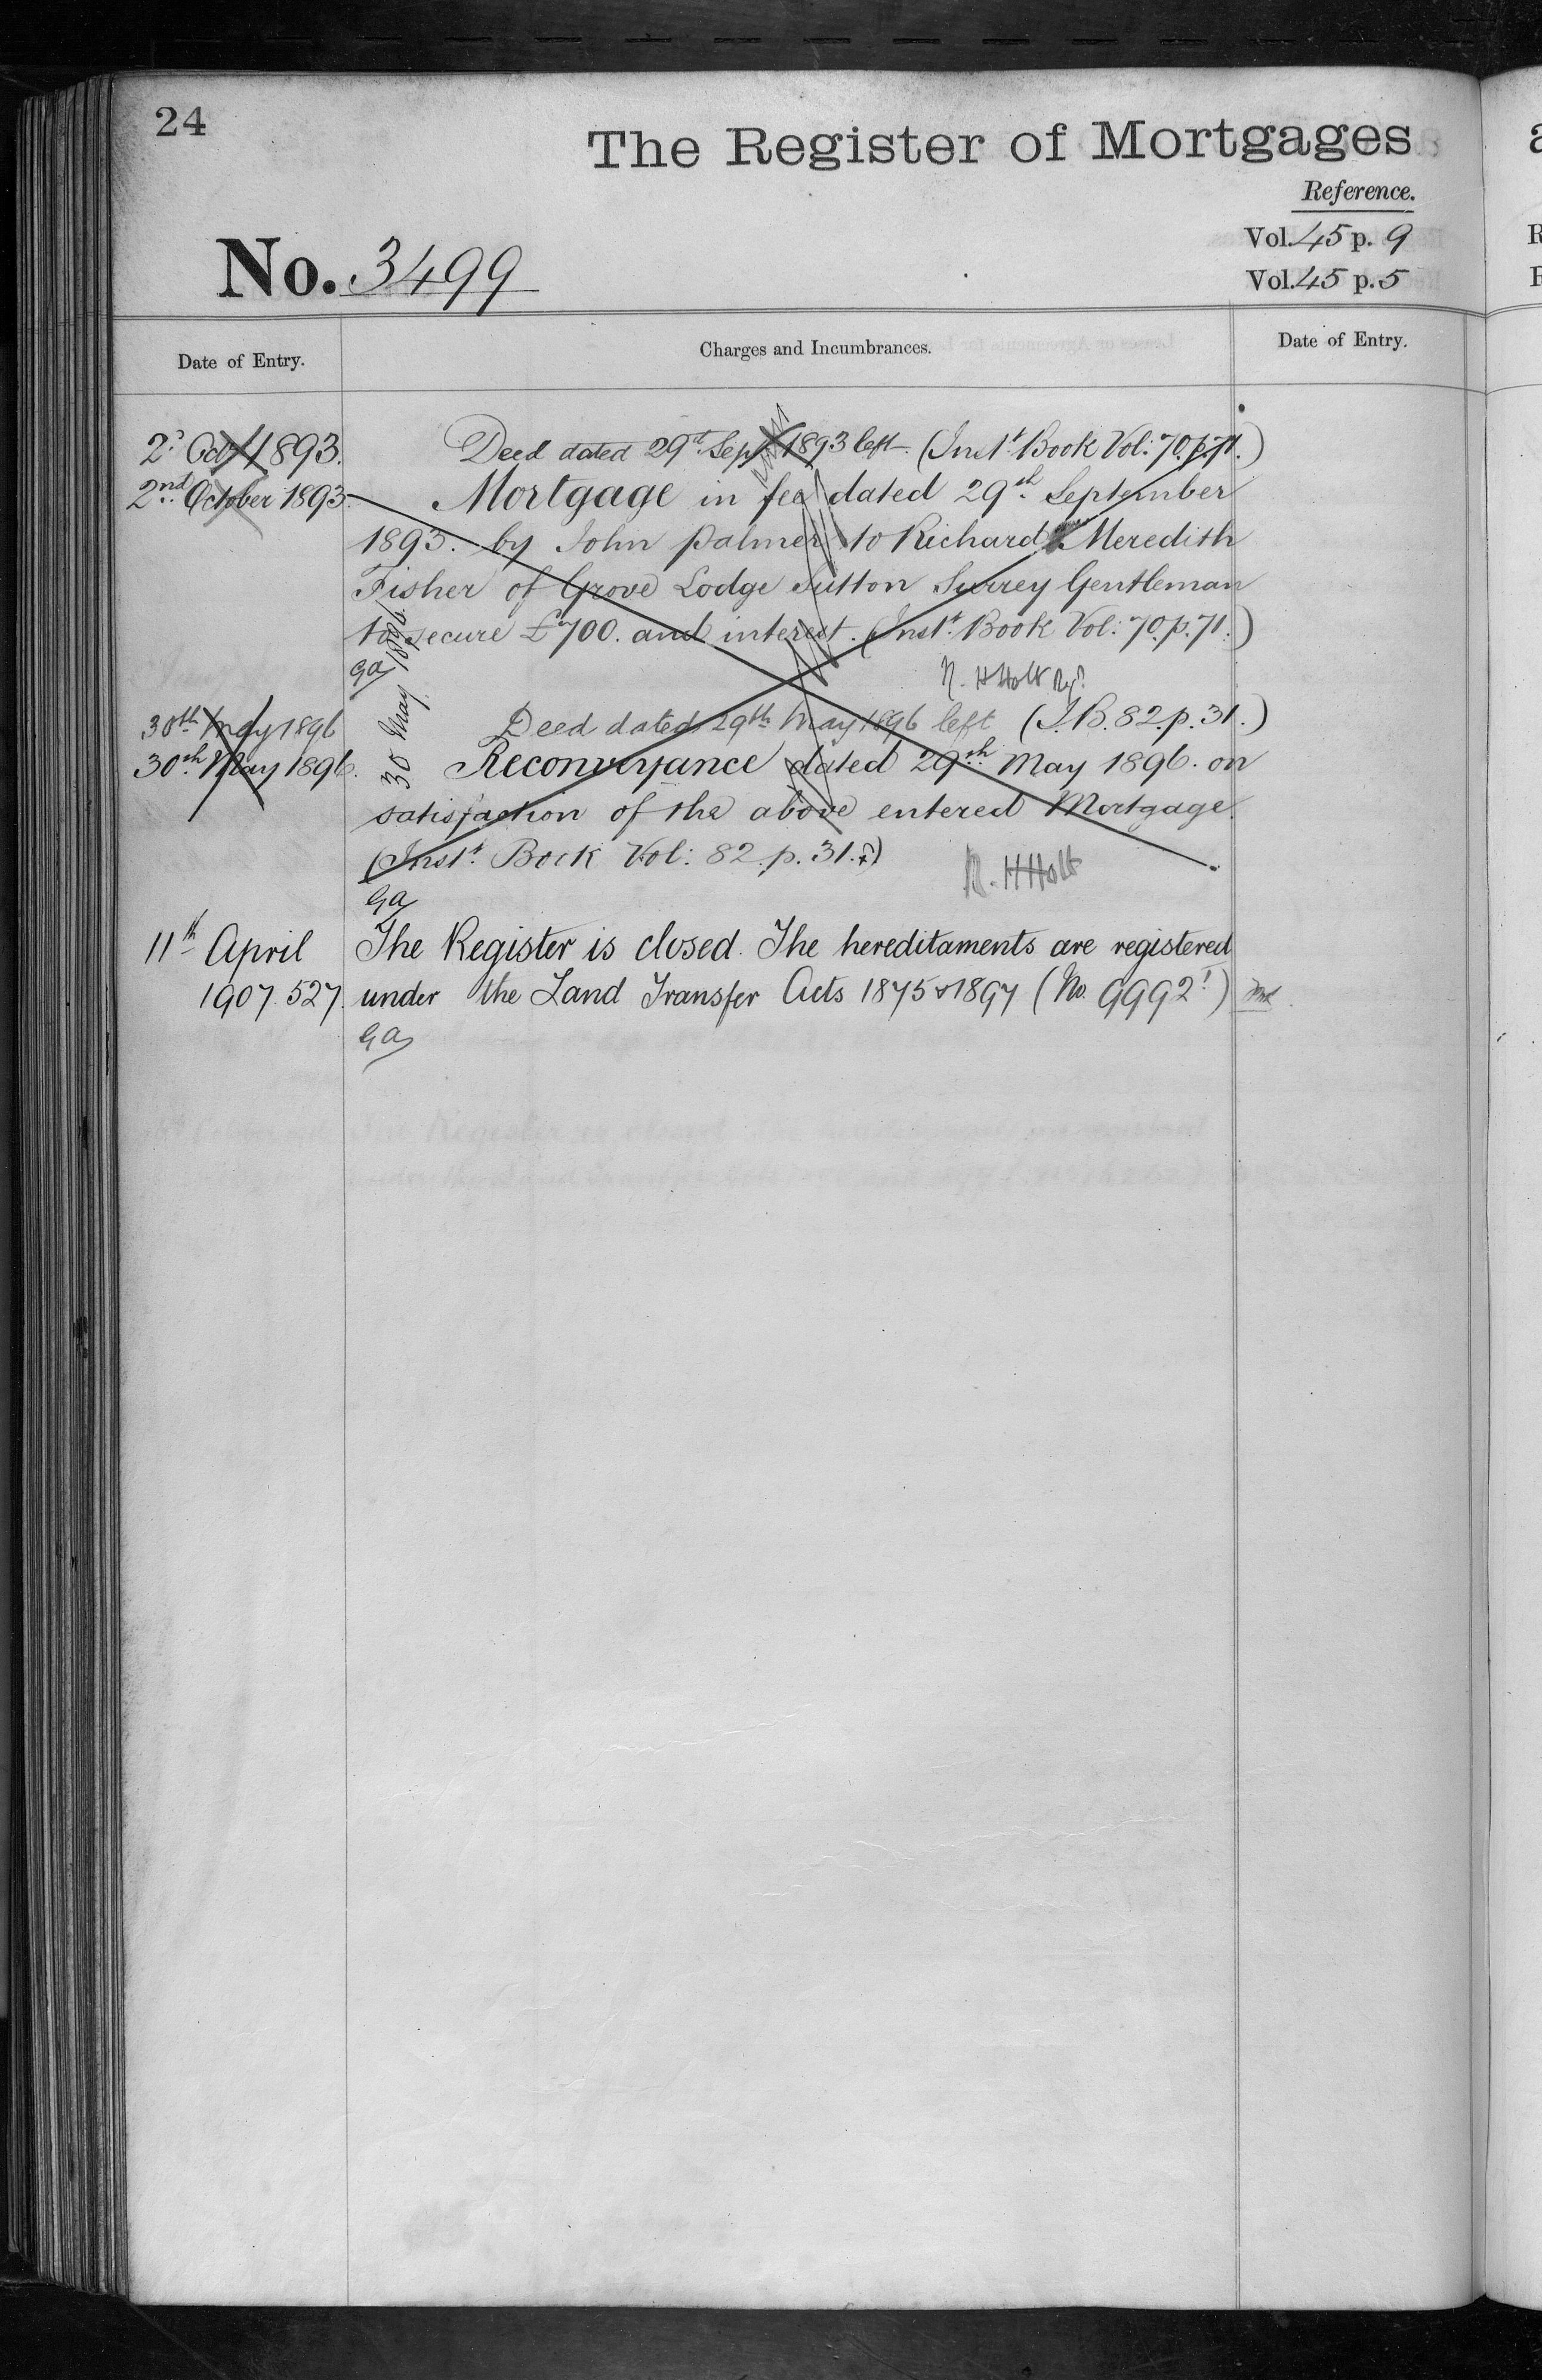 24
The Register of Mortgages
Reference.
Vol. 45 p. 9
No. 3499
Vol. 45 p. 5
Date of Entry.
Charges and Incumbrances.
Date of Entry.
2d Oct 1893. Deed dated 29th Sep 1893 left (Inst Book Vol: 70. p. 71.)
2nd October 1893. Mortgage in fee dated 29th September
1893. by John Palmer to Richard Meredith
Fisher of Grove Lodge Sutton Surrey Gentleman
to secure £700. and interest. (Inst Book Vol: 70. p. 71.)
GA
30 May 1896
R. H Holt Regr
30th May 1896 Deed dated 29th May 1896 left (I.B. 82. p. 31.)
30th May 1896. Reconveyance dated 29th May 1896. on
satisfaction of the above entered Mortgage.
(Inst Book Vol: 82. p. 31.)
R. H Holt
GA
11th April The Register is closed. The hereditaments are registered
1907. 527. under the Land Transfer Acts 1875 & 1897 (No. 99921)
GA